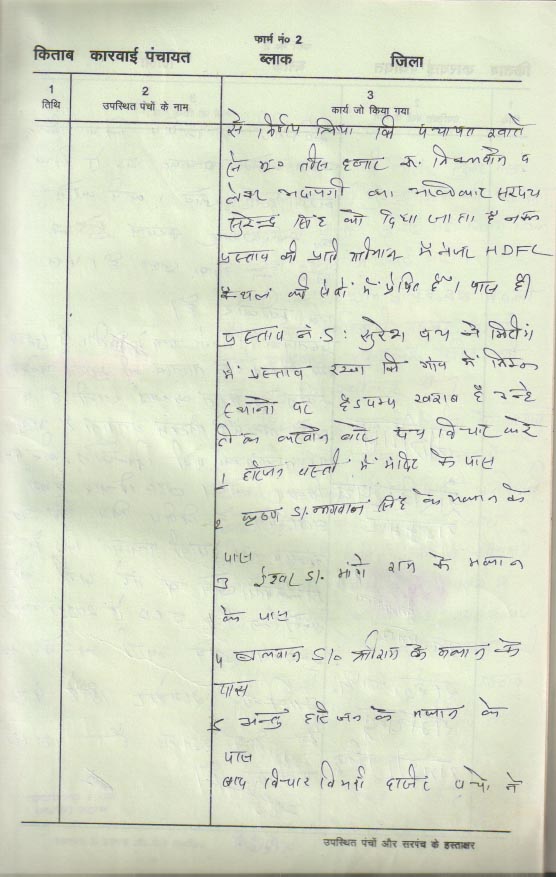 फार्म नं० 2
किताब कारवाई पंचायत ब्लाक जिला
1 2 3
तिथि उपस्थित पंचों के नाम कार्य जो किया गया
से निर्णय लिया कि पंचायत खाते
से मु० तीस हजार रू. निकलवाने व
लेकर अदायगी का अधिकार सरपंच
सुरेन्द्र सिंह को दिया जाता है
प्रस्ताव की प्रति HDFC
की सेवा में प्रेषित है। पास है।
प्रस्ताव नं. 5: सुरेश पंच ने मिटींग
में प्रस्ताव रखा कि गांव में निम्न
स्थानों पर हैडपम्प खराब है उन्हे
ठीक करवाने बारे पंच विचार करे
1 हरिजन बस्ती में मंदिर के पास
2 कृष्ण S/. भगवान सिंह के मकान के
पास
3 ईश्वर S/. मांगे राम के मकान
के पास
4 बलवान S/o श्रीराम के मकान के
पास
5 हरिजन के मकान के
पास
बाद विचार विमर्श हाजिर पंचो ने
उपस्थित पंचों और सरपंच के हस्ताक्षर